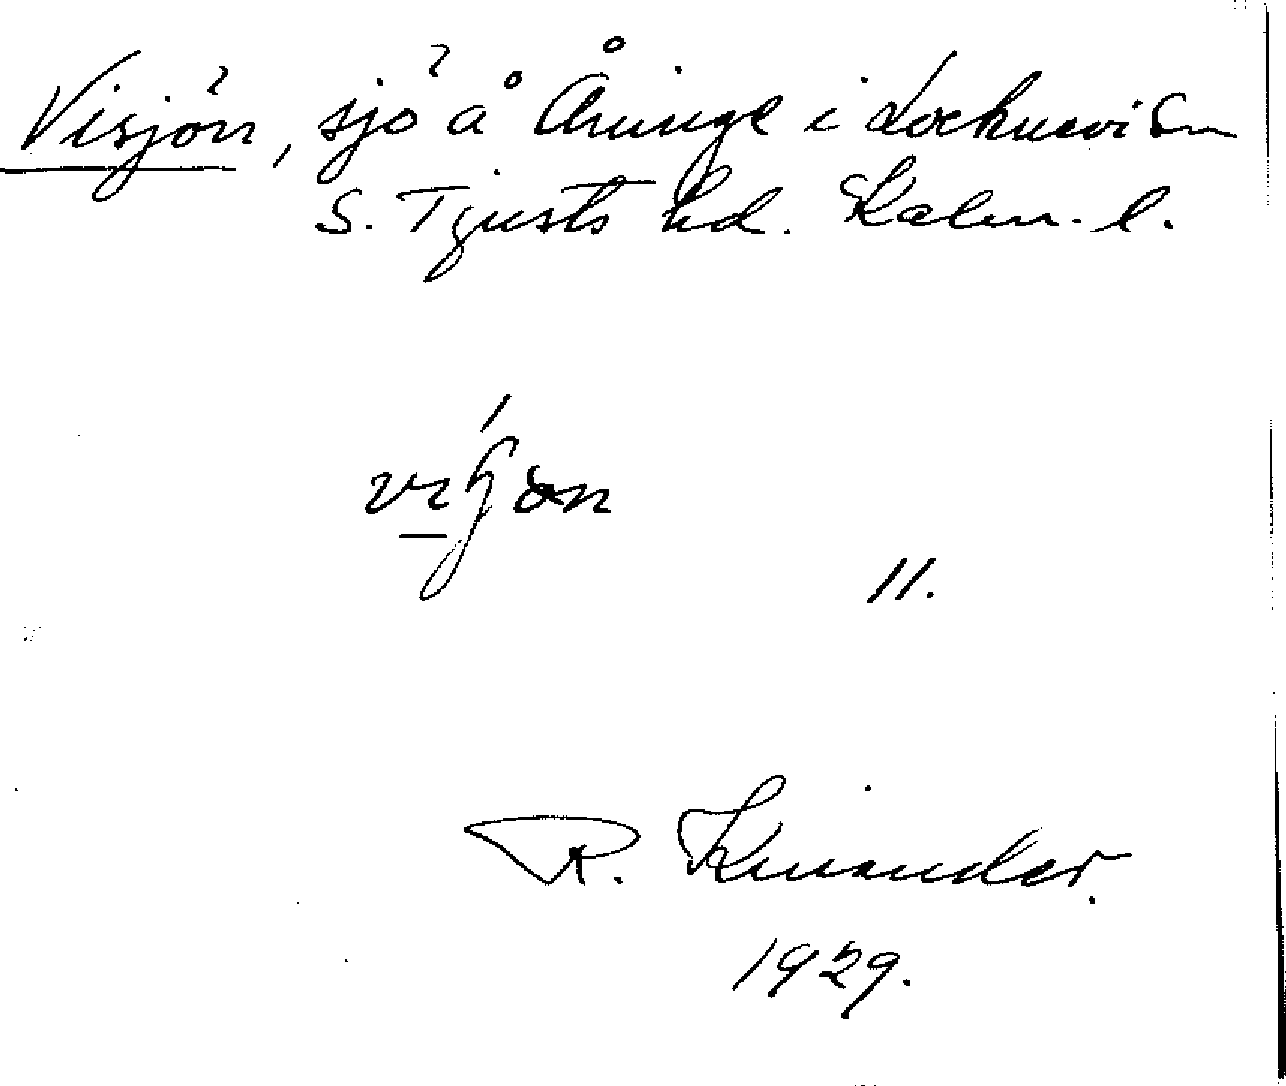 Visjön, sjö å Åninge i Locknevi Sn
S. Tjusts hd. Kalm. l.
11.
R. Kinander.
1929.